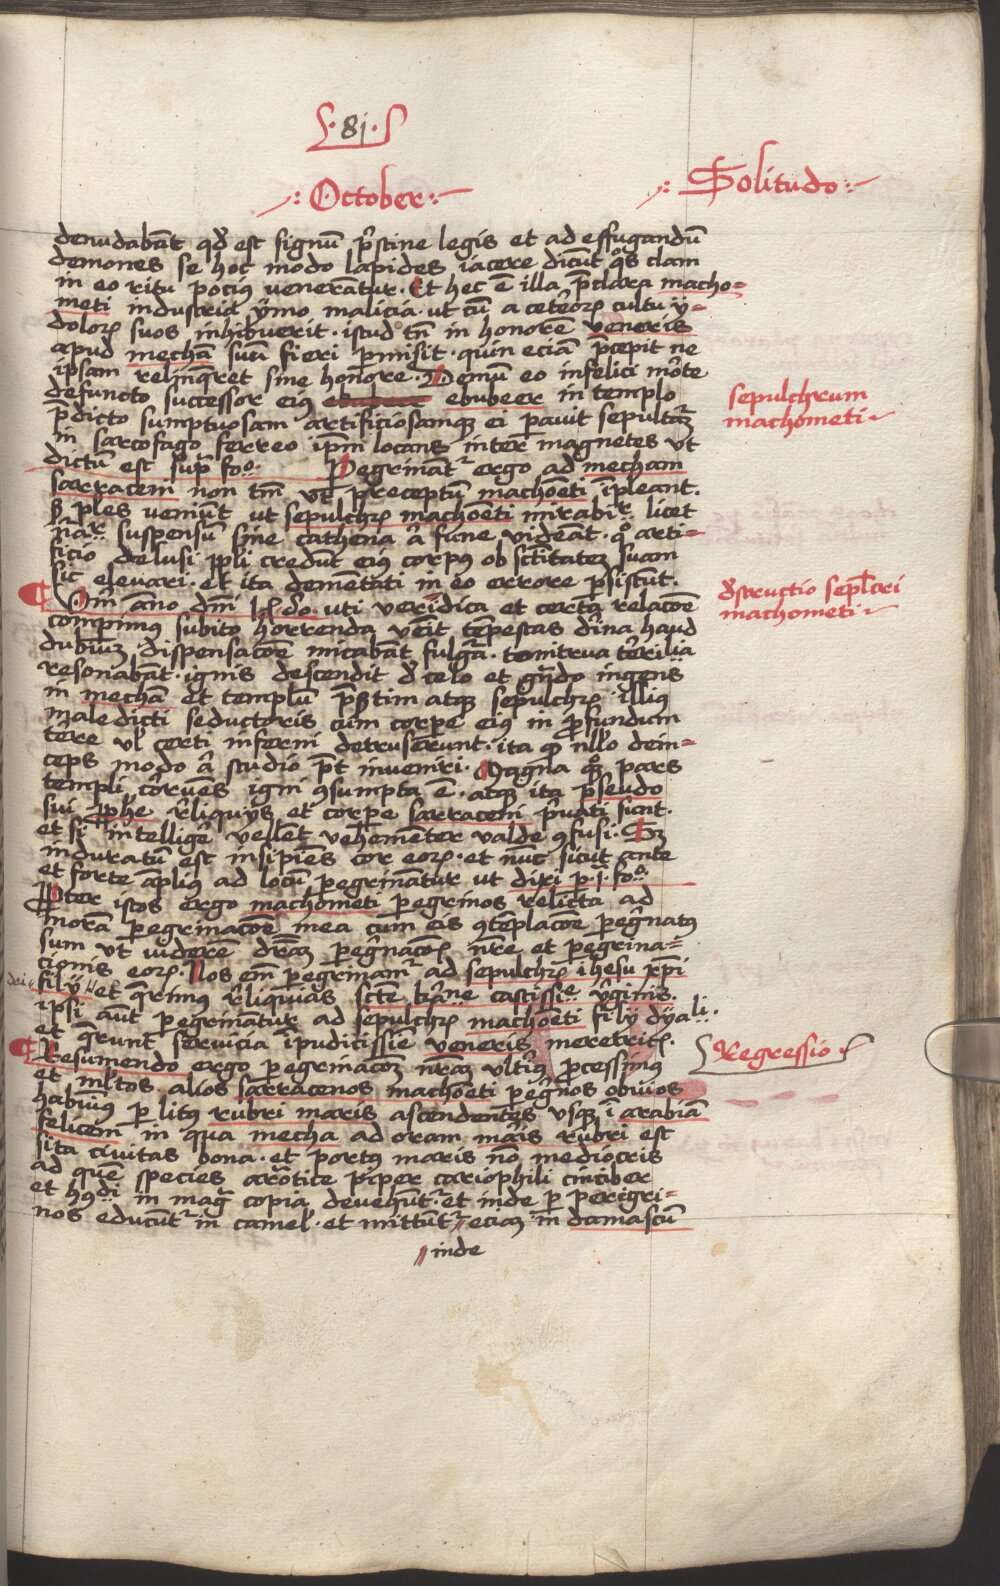 ·81·
October
Solitudo
denudabāt qd̄ est signū pr̄stine legis et ad effugandū
demones se hoc modo lapides iacere dicūt qͦs clam
in eo ritu pocius venerātur. Et hec ē illa p̄clara macho=
meti industria ymo malicia. ut cū a ceteroꝝ cultu y=
doloꝝ suos inhibuerit. istud tn̄ in honorē veneris
apud mechā suū fieri p̄misit. quin eciā p̄cepit ne
ipsam relinq̄ret sine honore. Demū eo infelici morte
defuncto successor eius ebubeer in templo
p̄dicto sumptuosam artificiosamqꝫ ei pauit sepultā
in sarcofago ferreo ip̄m locans inter magnetes ut
dictū est supͣ foͦ. Pegrināt̄ ergo ad mecham
sarraceni non tm̄ ut preceptū machōeti īpleant.
ples veniūt ut sepulchꝝ machōeti mirabiꝉ licet
suspensū sine cathena ā fune videāt. qͦ arti=
ficio delusi ppli credūt eiꝰ corpꝰ ob sc̄titatē suam
sic elevari. et ita demētati in eo errore p̄sistūt.
anno dn̄i uti veridica et certa relacōe
comperimꝰ subito horrenda vēit tēpestas diīna haud
dubiūꝫ dispensacōe micabāt fulgͣa. tonitrua terrilia
resonabāt. ignis descendit de celo et grādo ingens
in mechā et templū atqꝫ sepulchꝝ illius
maledicti seductoris cum corpe eiꝰ in p̄fundum
tere vꝉ certi inferni detruserunt. ita qͥ nllo dein=
ceps modo ā studio p̄t inveniri. Magna qͦꝫ pars
templi corruēs igni ꝯsumpta ē. atqꝫ ita pseudo
sui pphē reliquijs et corpe sarraceni p̄vati sunt.
et si intelligē vellēt vehementer valde ꝯfusi. Sꝫ
induratū est insipiēs cor eoꝝ. et nūc sicut ante
et forte āplius ad locū pegrinātur ut dixi p. 1. foͦ.
Propter istos ergo machometi pegrinos relicta ad
morā pegrinacōe mea cum eis ꝯtēplacōe pegrinatꝰ
sum ut viderē dr̄am pegnacōꝫ nr̄e et pegrina=
cionis eoꝝ. Nos eīm pegrinamꝰ ad sepulchꝝ ihesu xp̄i
dei filij et qͣrimꝰ reliquias sctē kͣr̄ine castissiē v̄ginis.
ipsi aut pegrinātur ad sepulchꝝ machōeti filij dyali.
et qͣrunt servicia īpudicissie veneris meretriꝫ.
Resumendo ergo pegrinacōꝫ nr̄aꝫ ulterꝰ p̄cessimꝰ
et mltos alios sarracenos machōeti pegnos obuios
habuimꝰ per litꝰ rubri maris ascendentes vsqꝫ ī arabiā
felicem in qua mecha ad oram māis rubri est
sita civitas bona. et portꝰ maris nō mediocris
ad quē species arōtice piper cariophili cinciber
et hꝰdi in magͣ copia devehūt̄. et inde p perigri=
nos educūt̄ in cameꝉ. et mittūt̄ eciaꝫ in damascū
inde
sepulchrum
machometi
dest​ructio seplcri
machometi
Regressio